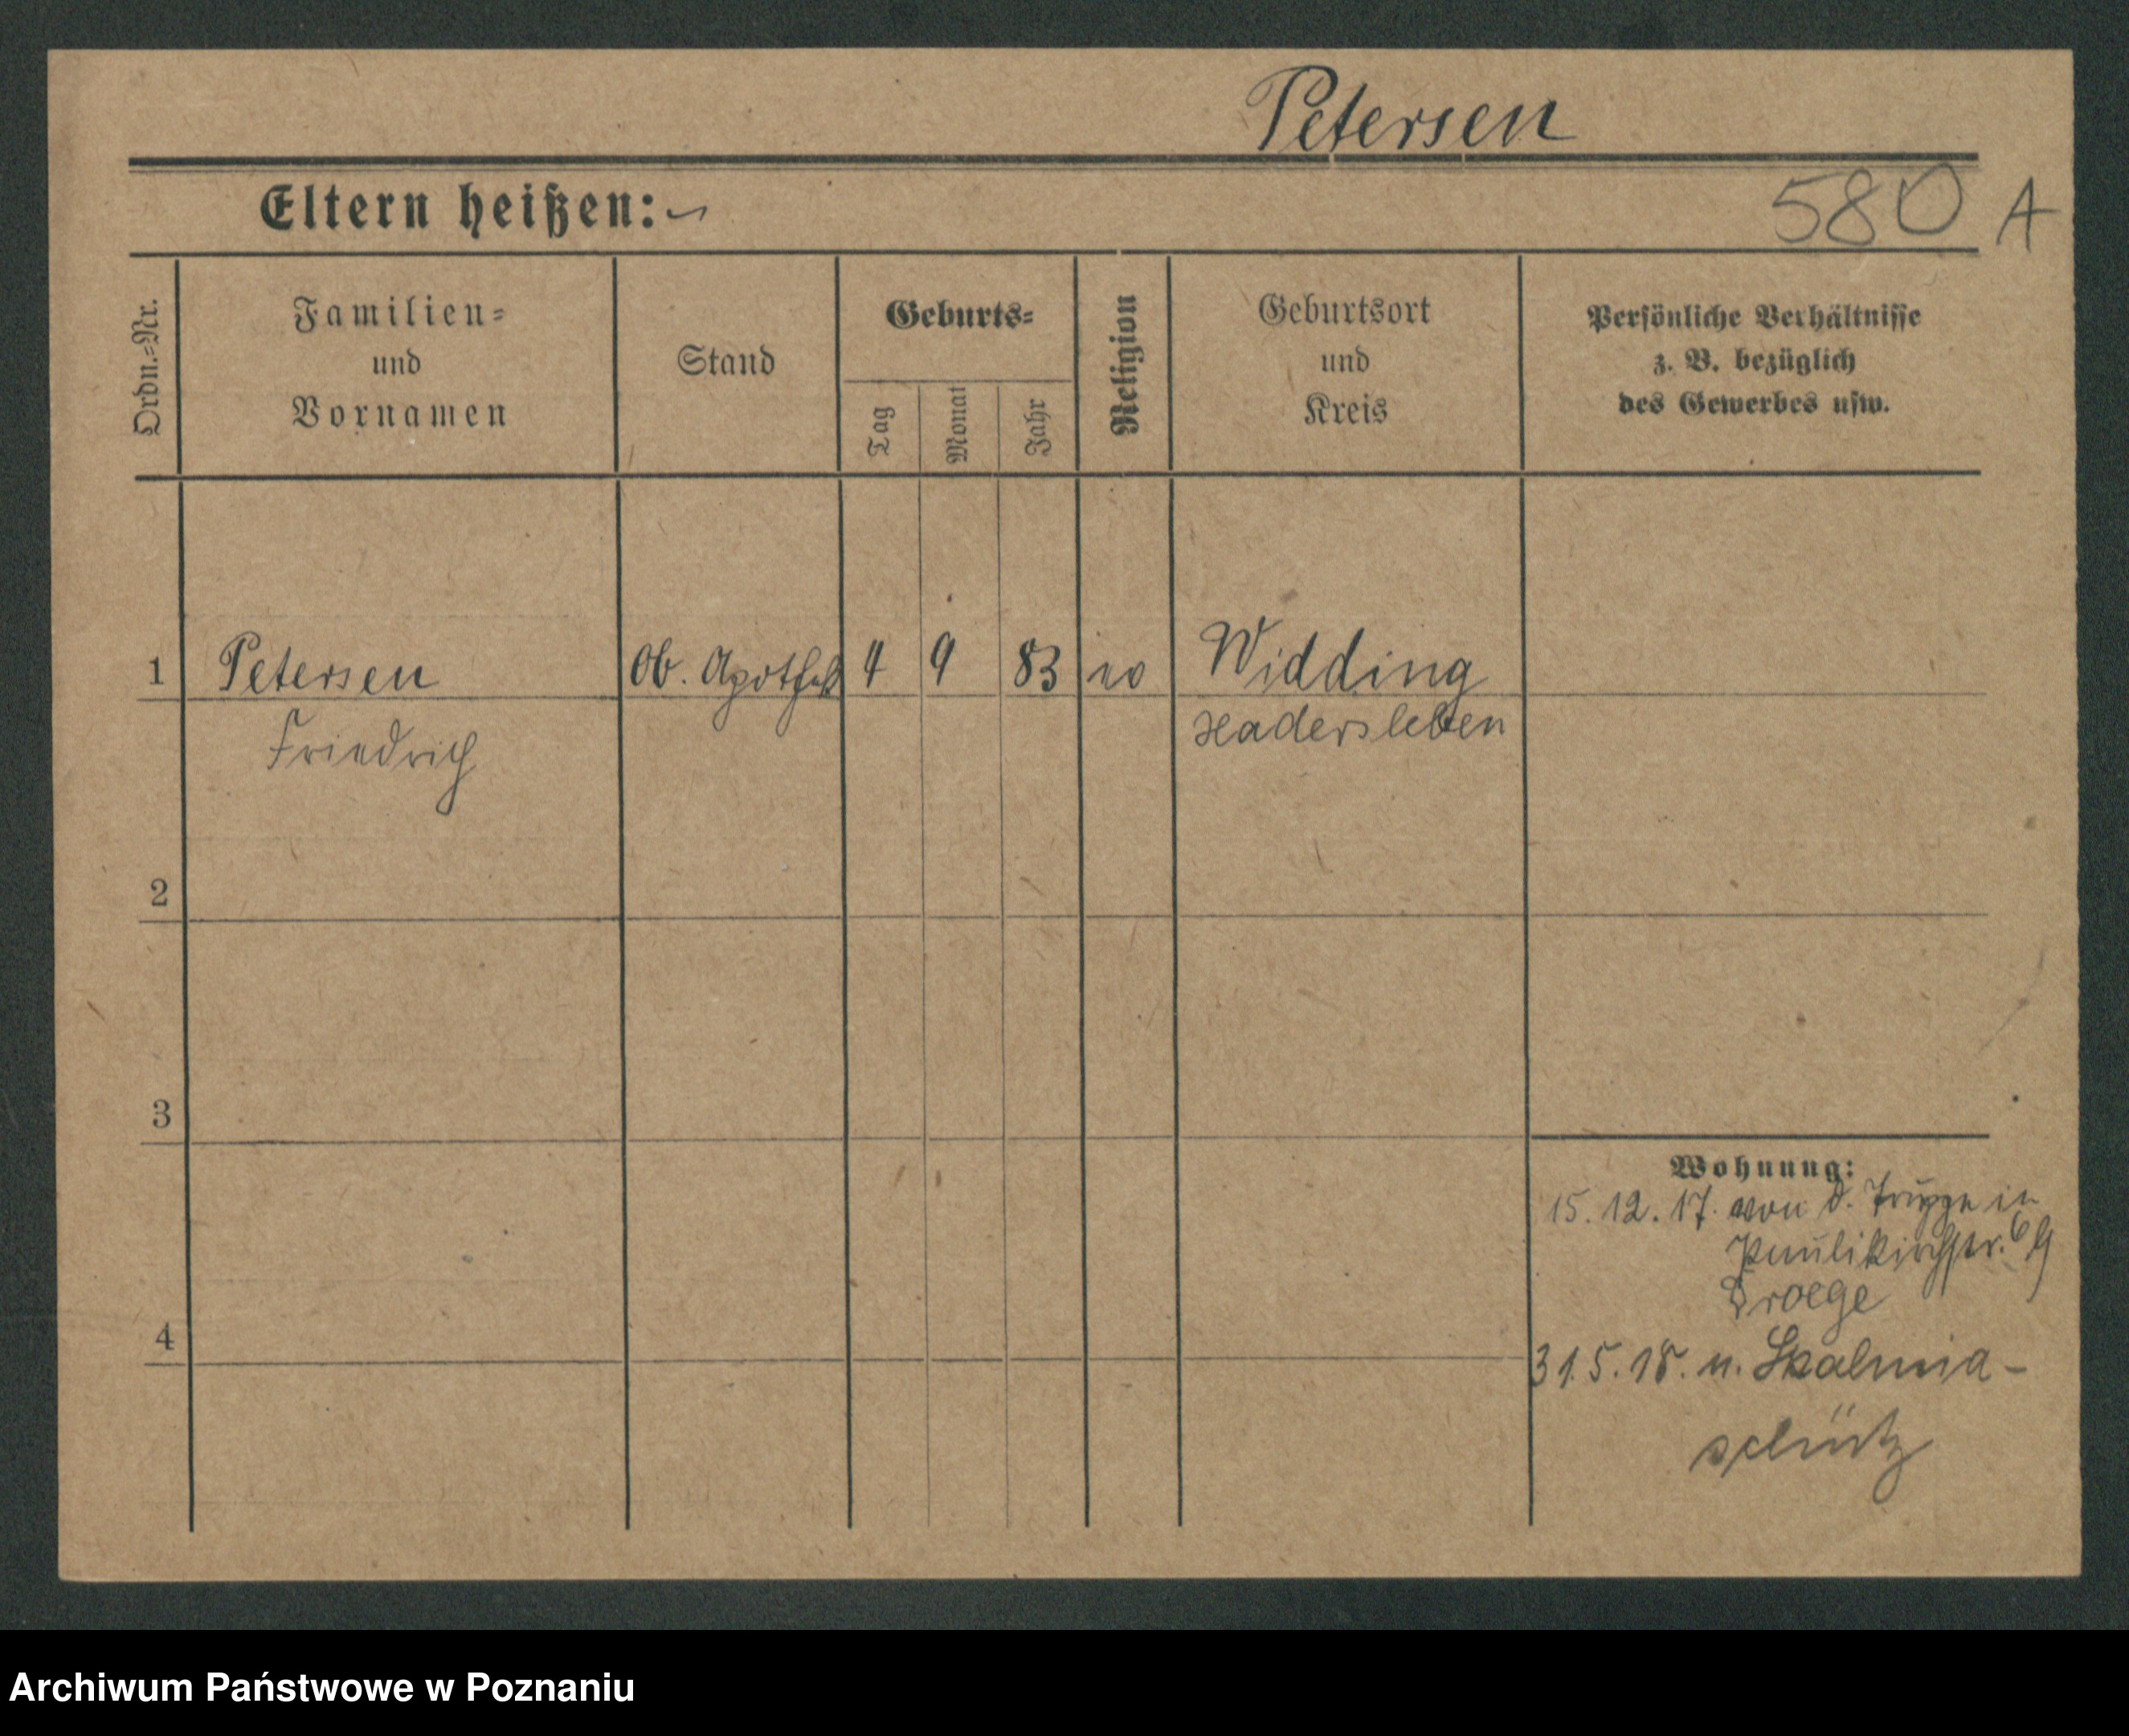 Petersen
Eltern heißen:
580 A
Ordn.-Nr.
Familien-
und
Vornamen
Stand
Geburts-
Tag
Monat
Jahr
Religion
Geburtsort
und
Kreis
Persönliche Verhältnisse
z. B. bezüglich
des Gewerbes usw.
1 Petersen Ob. Apothek 4 9 83 Widding
Friedrich Hadersleben
2
3
Wohnung:
15.12.17. von d. Truppe in
Paulikirchstr. 6
Droege
4
31.5.18. n. Skalmia-
schütz
Archiwum Państwowe w Poznaniu